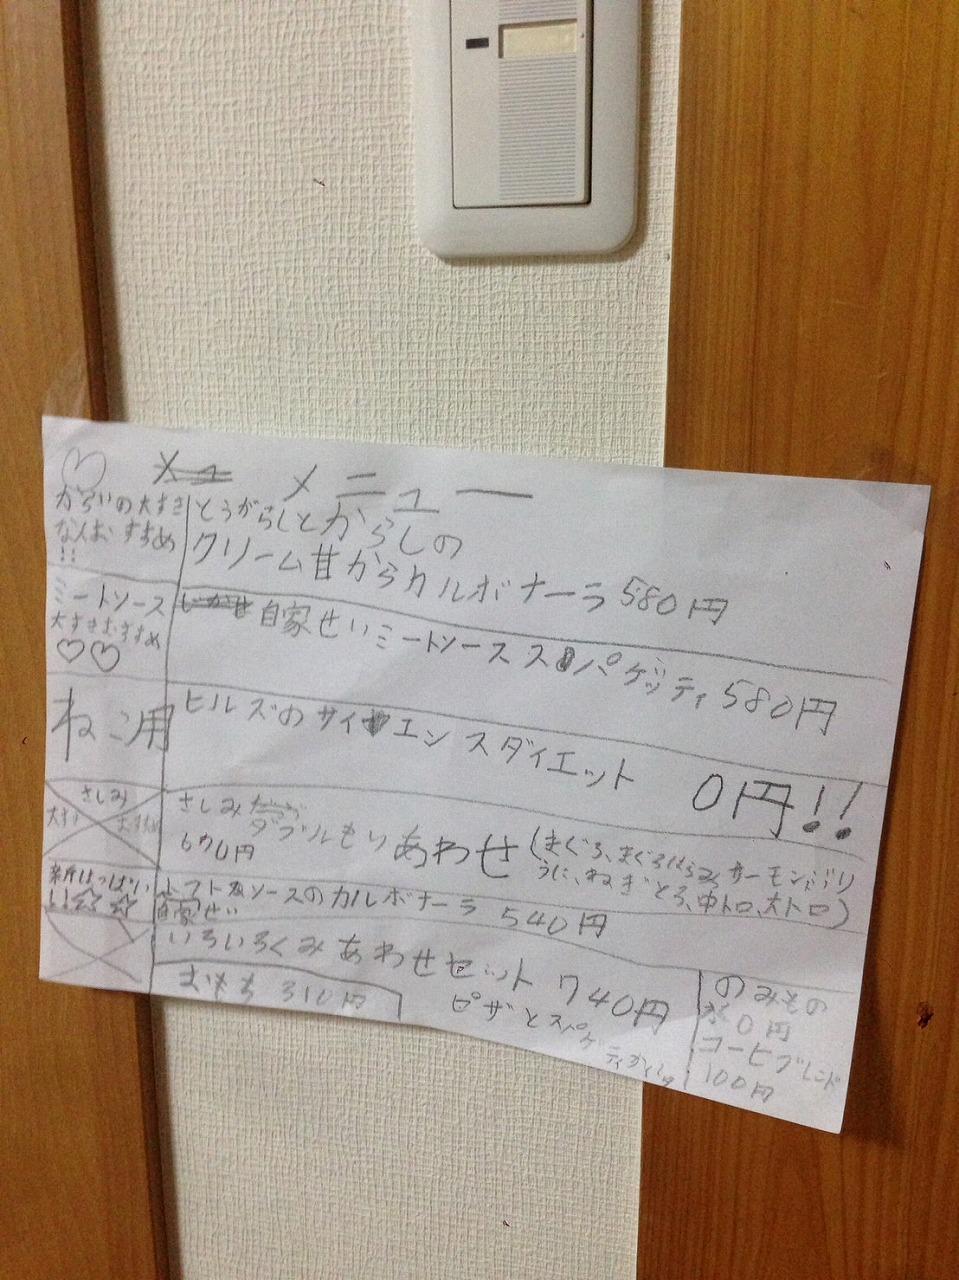 メニュー
からいの大すき
な人おすすめ
!!
とうがらしとからしの
クリーム甘からカルボナーラ 580円
ミートソース
大すきおすすめ
♡♡
自家せいミートソーススパゲッティ 580円
ねこ用
ヒルズのサイエンスダイエット 0円!!
さしみ
大すき おすすめ
さしみ
ダブルもりあわせ(まぐろ、まぐろはらみ、サーモン、ぶり
670円
うに、ねぎとろ、中トロ、大トロ)
新はつばい
!!☆☆
トマトソースのカルボナーラ 540円
自家せい
いろいろくみあわせセット 740円
ピザとスパゲティ
おもち 310円
のみもの
水0円
コーヒブレンド
100円